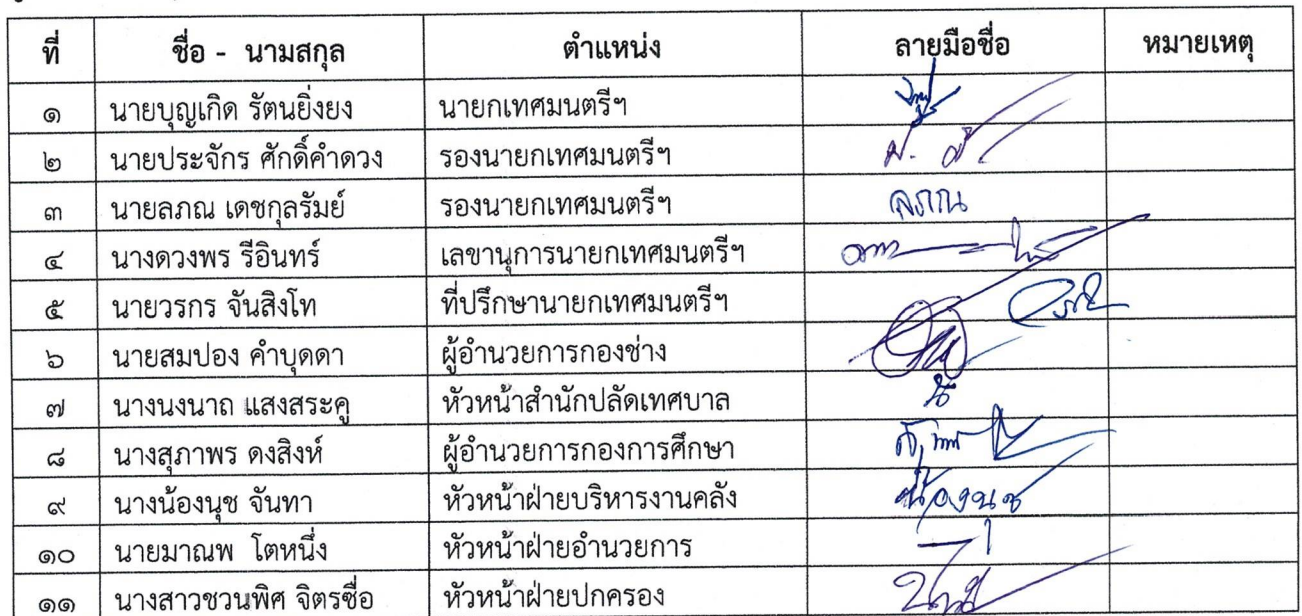 ที่ ชื่อ - นามสกุล ตำแหน่ง ลายมือชื่อ หมายเหตุ
๑ นายบุญเกิด รัตนยิ่งยง นายกเทศมนตรีฯ
๒ นายประจักร ศักดิ์คำดวง รองนายกเทศมนตรีฯ
๓ นายลภณ เดชกุลรัมย์ รองนายกเทศมนตรีฯ ลภณ
๔ นางดวงพร รีอินทร์ เลขานุการนายกเทศมนตรีฯ
๕ นายวรกร จันสิงโท ที่ปรึกษานายกเทศมนตรีฯ
๖ นายสมปอง คำบุดดา ผู้อำนวยการกองช่าง
๗ นางนงนาถ แสงสระคู หัวหน้าสำนักปลัดเทศบาล
๘ นางสุภาพร ดงสิงห์ ผู้อำนวยการกองการศึกษา
๙ นางน้องนุช จันทา หัวหน้าฝ่ายบริหารงานคลัง น้องนุช
๑๐ นายมาณพ โตหนึ่ง หัวหน้าฝ่ายอำนวยการ
๑๑ นางสาวชวนพิศ จิตรซื่อ หัวหน้าฝ่ายปกครอง